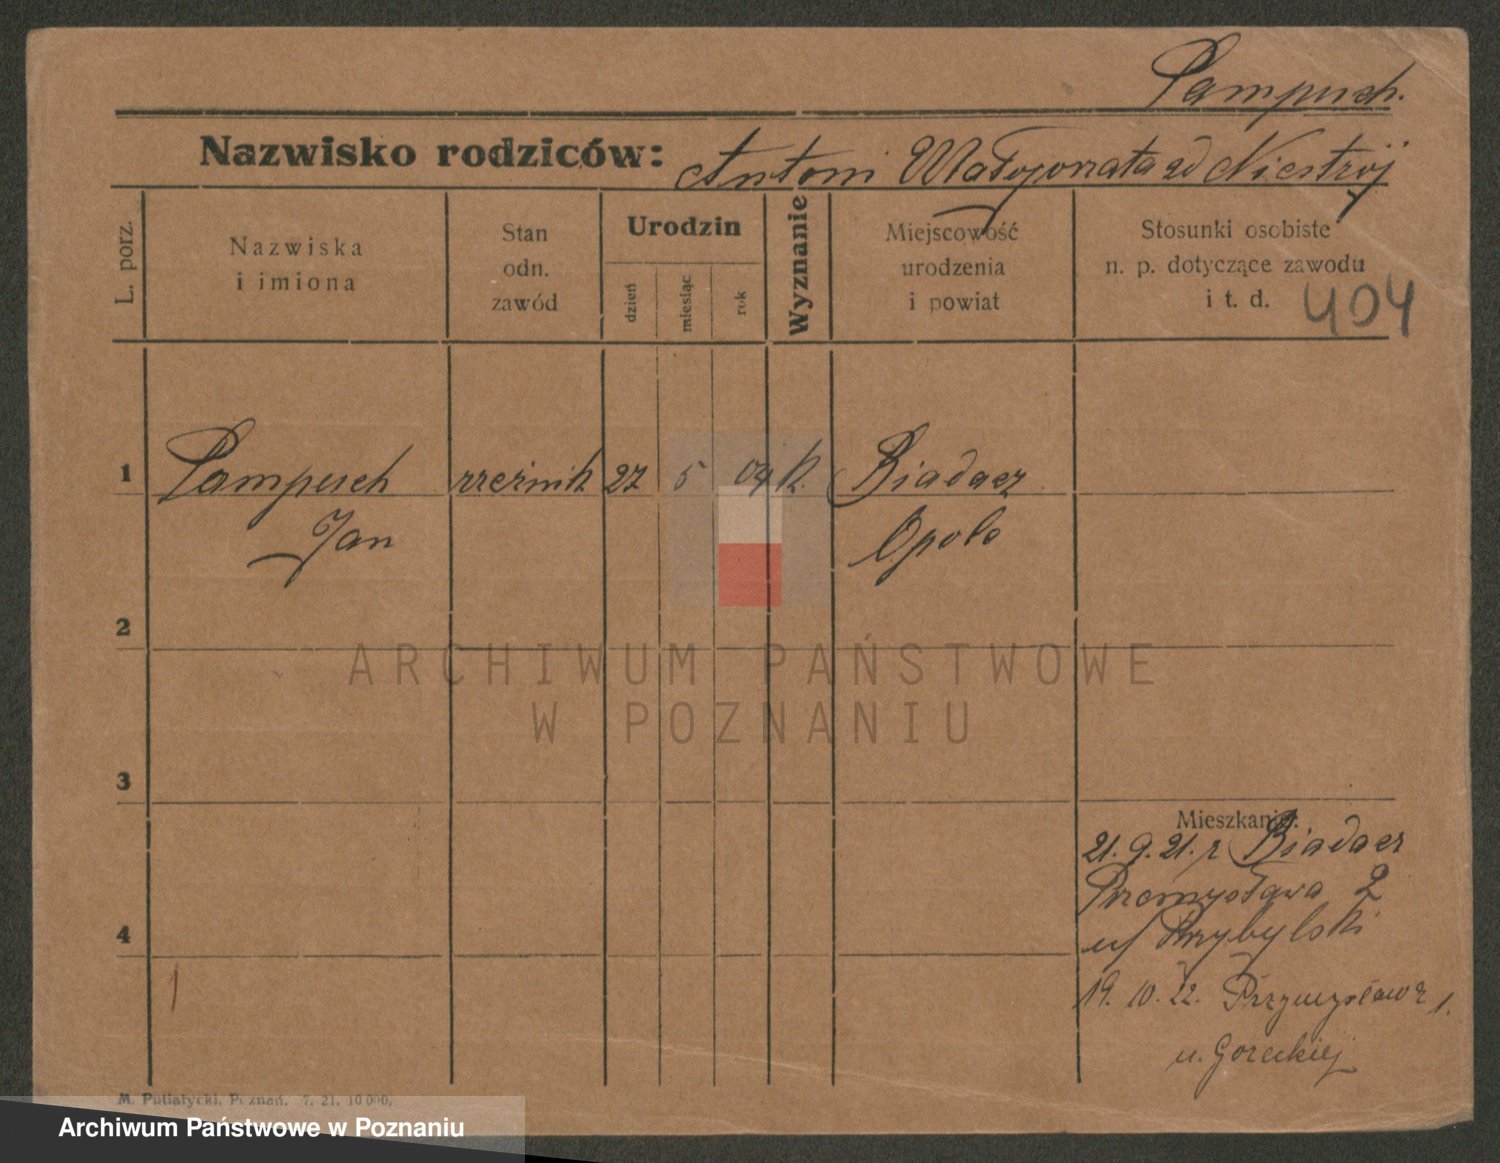 Pampuch.
Nazwisko rodziców: Antoni Małgorzata zd Niestrój
L. porz.
Nazwiska
i imiona
Stan
odn.
zawód
Urodzin
dzień
miesiąc
rok
Wyznanie
Miejscowość
urodzenia
i powiat
Stosunki osobiste
n. p. dotyczące zawodu
i t. d.
404
1 Pampuch rzeźnik 27 5 04 k. Biadacz
Jan Opole
2
ARCHIWUM PAŃSTWOWE
W POZNANIU
3
Mieszkanie.
21. 9. 21. z Biadacz
Przemysława 2
u/ Przybylski
4
19. 10. 22. Przemysława 1.
u. Goreckiej
M. Putiatycki. Poznań. 7. 21. 10 000.
Archiwum Państwowe w Poznaniu